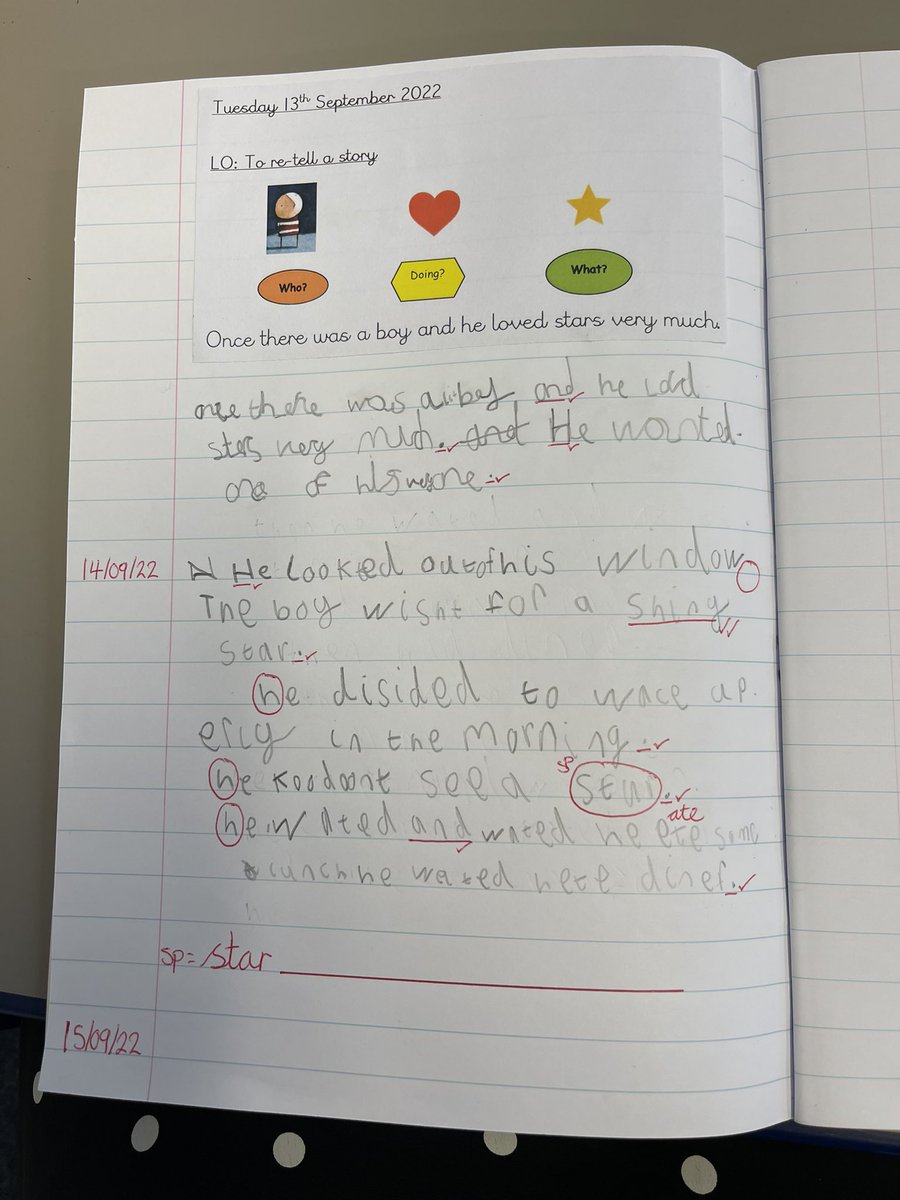 Tuesday 13th September 2022
LO: To re-tell a story
Who? Doing? What?
Once there was a boy and he loved stars very much.
once there was a boy and he
stars very much. and He wanted
one of his
14/09/22 N He looked out of his window
The boy wisht for a shiny
star.
he disided to wace up
erly in the morning.
he see a sp star.
he and wated he ete ate some
lunch he wated he ete diner.
sp= star
15/09/22